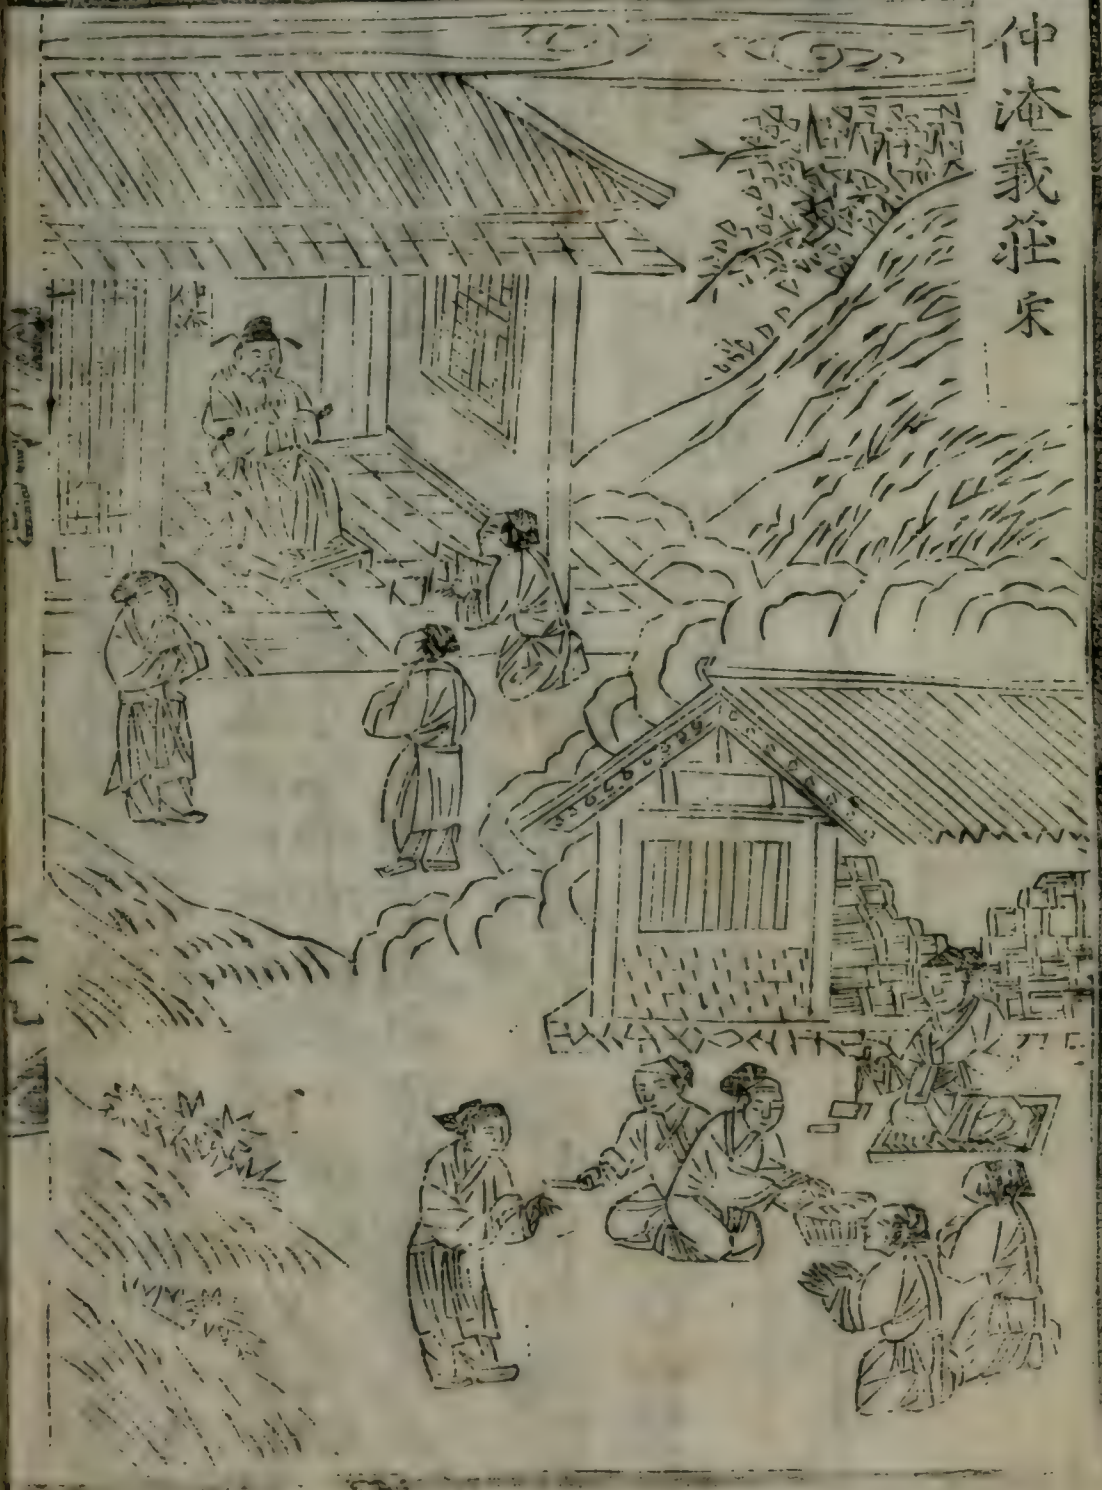 仲淹義莊 宋